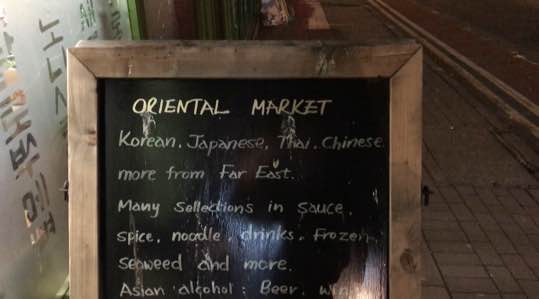 ORIENTAL MARKET
Korean. Japanese, Thai. Chinese.
more from Far East.
Many Sellections in Sauce,
spice, noodle, drinks. Frozen,
Seaweed and more.
Asian alcohol: Beer. win